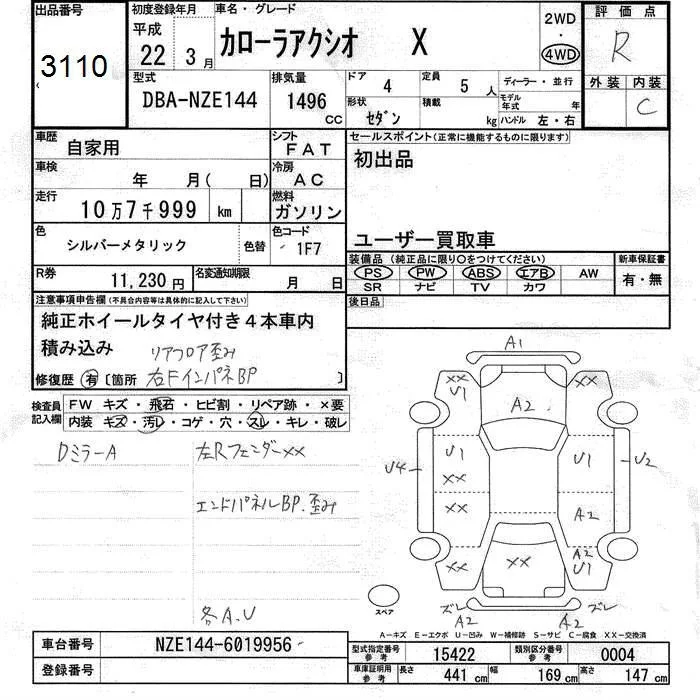 出品番号
3110
初度登録年月
平成
22年 3月
車名・グレード
カローラアクシオ X
2WD
・
4WD
評価点
R
外装 内装
C
型式
DBA-NZE144
排気量
1496 CC
ドア
4
定員
5 人
形状
セダン
積載
kg
ディーラー・並行
モデル年式 年
ハンドル 左・右
車歴
自家用
シフト
FAT
車検
年 月( 日)
冷房
AC
走行
10万7千999 km
燃料
ガソリン
色
シルバーメタリック
色替
色コード
1F7
R券
11,230円
名変通知期限
月 日
セールスポイント(正常に機能するものに限ります)
初出品
ユーザー買取車
装備品 (純正品に限り○をつけてください)
PS PW ABS エアB AW
SR ナビ TV カワ
新車保証書
有・無
後日品
注意事項申告欄(不具合内容等は具体的に記入して下さい)
純正ホイールタイヤ付き4本車内
積み込み
リアフロア歪み
修復歴 有 〔箇所 右FインパネBP 〕
検査員記入欄
FW キズ・飛石・ヒビ割・リペア跡・×要
内装 キズ・汚レ・コゲ・穴・スレ・キレ・破レ
DミラーA
左Rフェンダーxx
エンドパネルBP.歪み
各A.U
A1
XX
U1
XX
A2
U4
U1
XX
XX
U1
U2
A2
XX
U1
XX
A2
U1
ズレ
A2
A2
ズレ
スペア
A−キズ E−エクボ U−凹み W−補修跡 S−サビ C−腐食 XX−交換済
車台番号
NZE144-6019956
登録番号
型式指定番号 参考
15422
類別区分番号 参考
0004
車庫証明用 参考
長さ 441 cm
幅 169 cm
高さ 147 cm